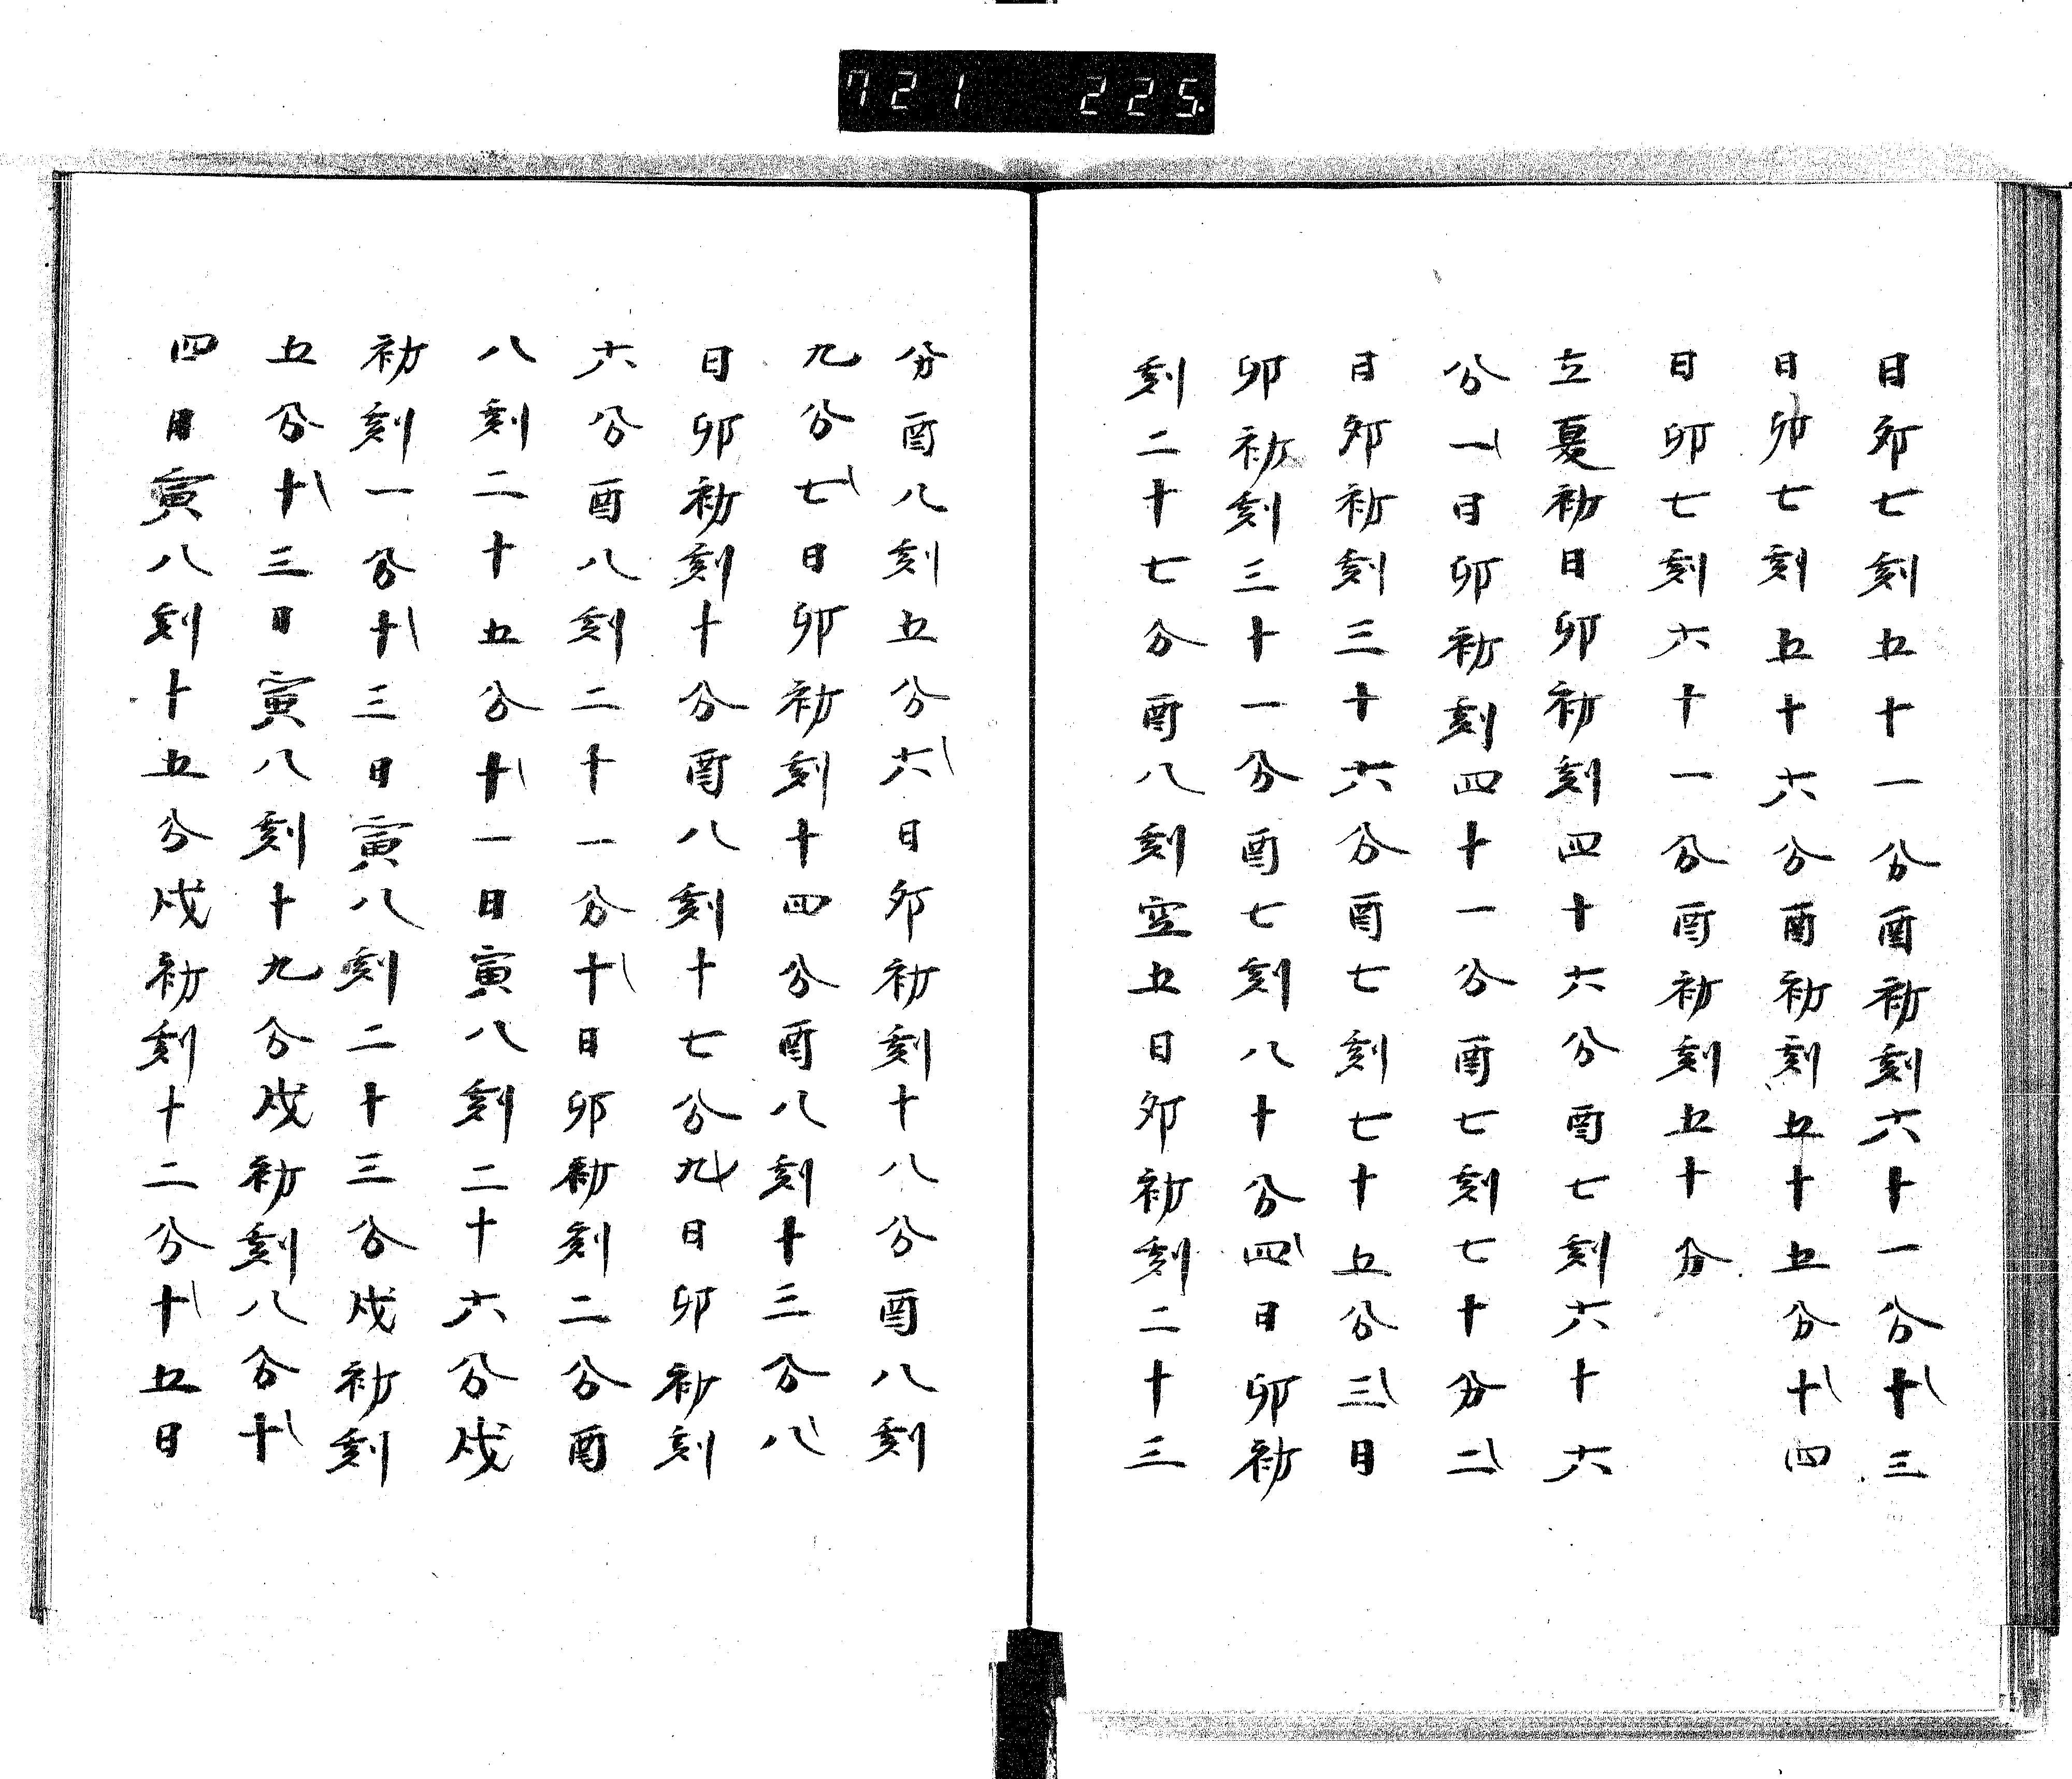 721 225
日夘七刻五十一分酉初刻六十一分十三
日夘七刻五十六分酉初刻五十五分十四
日夘七刻六十一分酉初刻五十分
立夏初日夘初刻四十六分酉七刻六十六
分一日夘初刻四十一分酉七刻七十分二
日夘初刻三十六分酉七刻七十五分三日
夘初刻三十一分酉七刻八十分四日夘初
刻二十七分酉八刻空五日夘初刻二十三
分酉八刻五分六日夘初刻十八分酉八刻
九分七日夘初刻十四分酉八刻十三分八
日夘初刻十分酉八刻十七分九日夘初刻
六分酉八刻二十一分十日夘初刻二分酉
八刻二十五分十一日寅八刻二十六分戌
初刻一分十三日寅八刻二十三分戌初刻
五分十三日寅八刻十九分戌初刻八分十
四日寅八刻十五分戌初刻十二分十五日